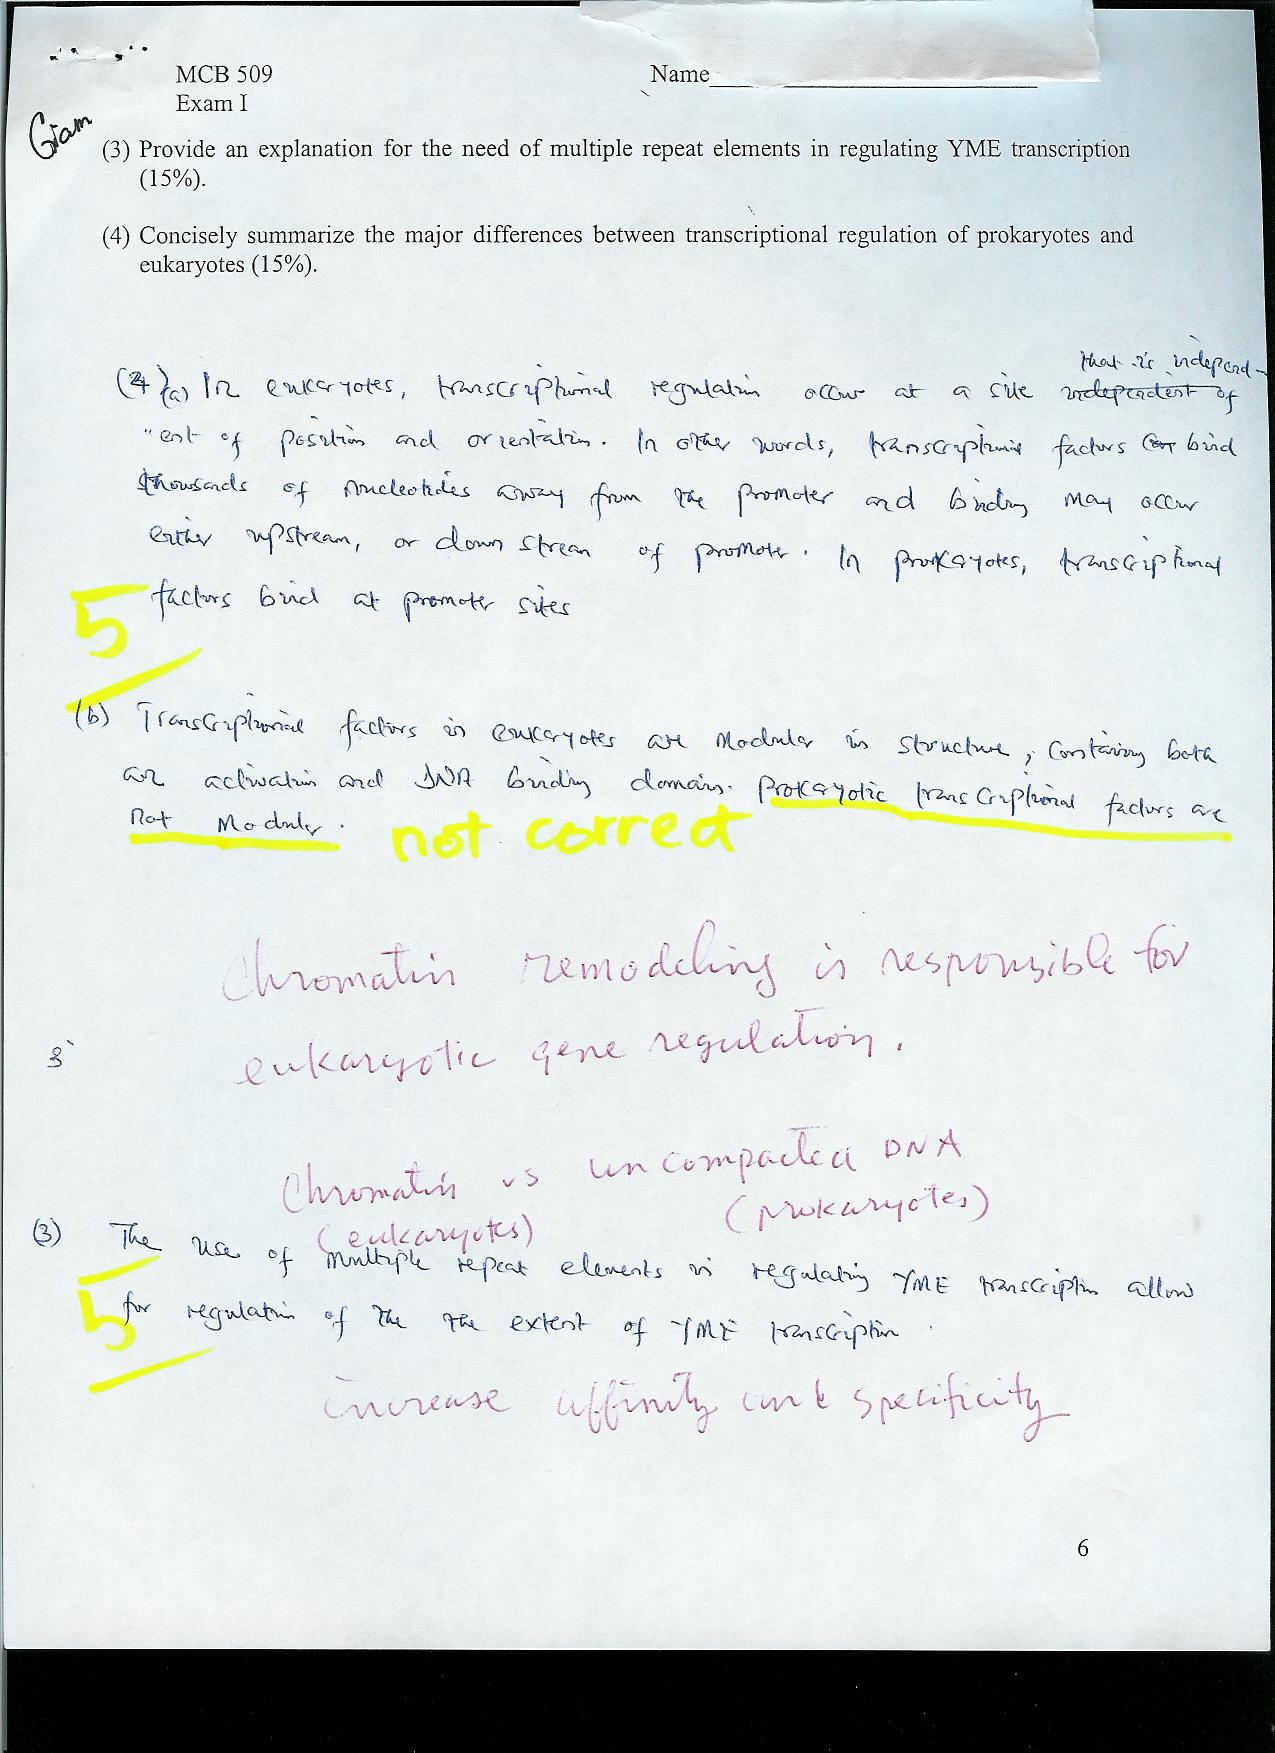 MCB 509
Name
Exam I
Giam
(3) Provide an explanation for the need of multiple repeat elements in regulating YME transcription
(15%).
(4) Concisely summarize the major differences between transcriptional regulation of prokaryotes and
eukaryotes (15%).
that is independ-
(4)(a) In eukaryotes, transcriptional regulation occur at a site independent of
"ent of position and orientation. In other words, transcriptional factors can bind
thousands of nucleotides away from the promoter and binding may occur
either upstream, or down stream of promoter. In prokaryotes, transcriptional
factors bind at promoter sites
5
(b) Transcriptional factors in eukaryotes are modular in structure, containing both
an activation and DNA binding domain. Prokaryotic transcriptional factors are
not modular.
not correct
Chromatin remodeling is responsible for
3
eukaryotic gene regulation.
Chromatin vs uncompacted DNA
(eukaryotes) (prokaryotes)
(3) The use of multiple repeat elements in regulating YME transcription allow
for regulation of the the extent of YME transcription.
5
increase affinity and specificity
6